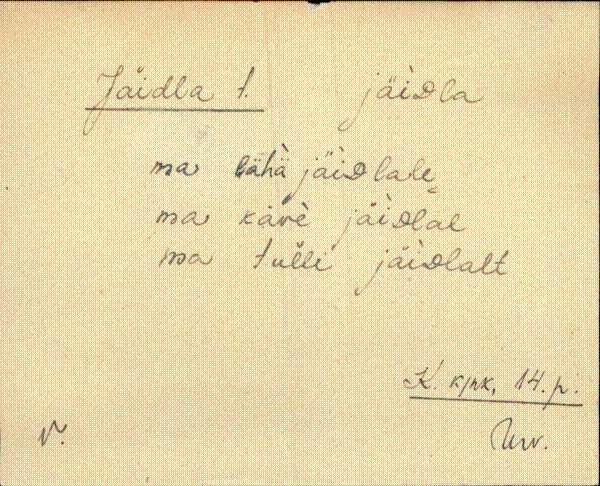 Jäidla t. jäiDla
ma lähä jäiDlale
ma käve jäiDlal
ma tulli jäiDlalt
K. kpnk, 14. p.
V. Urv.